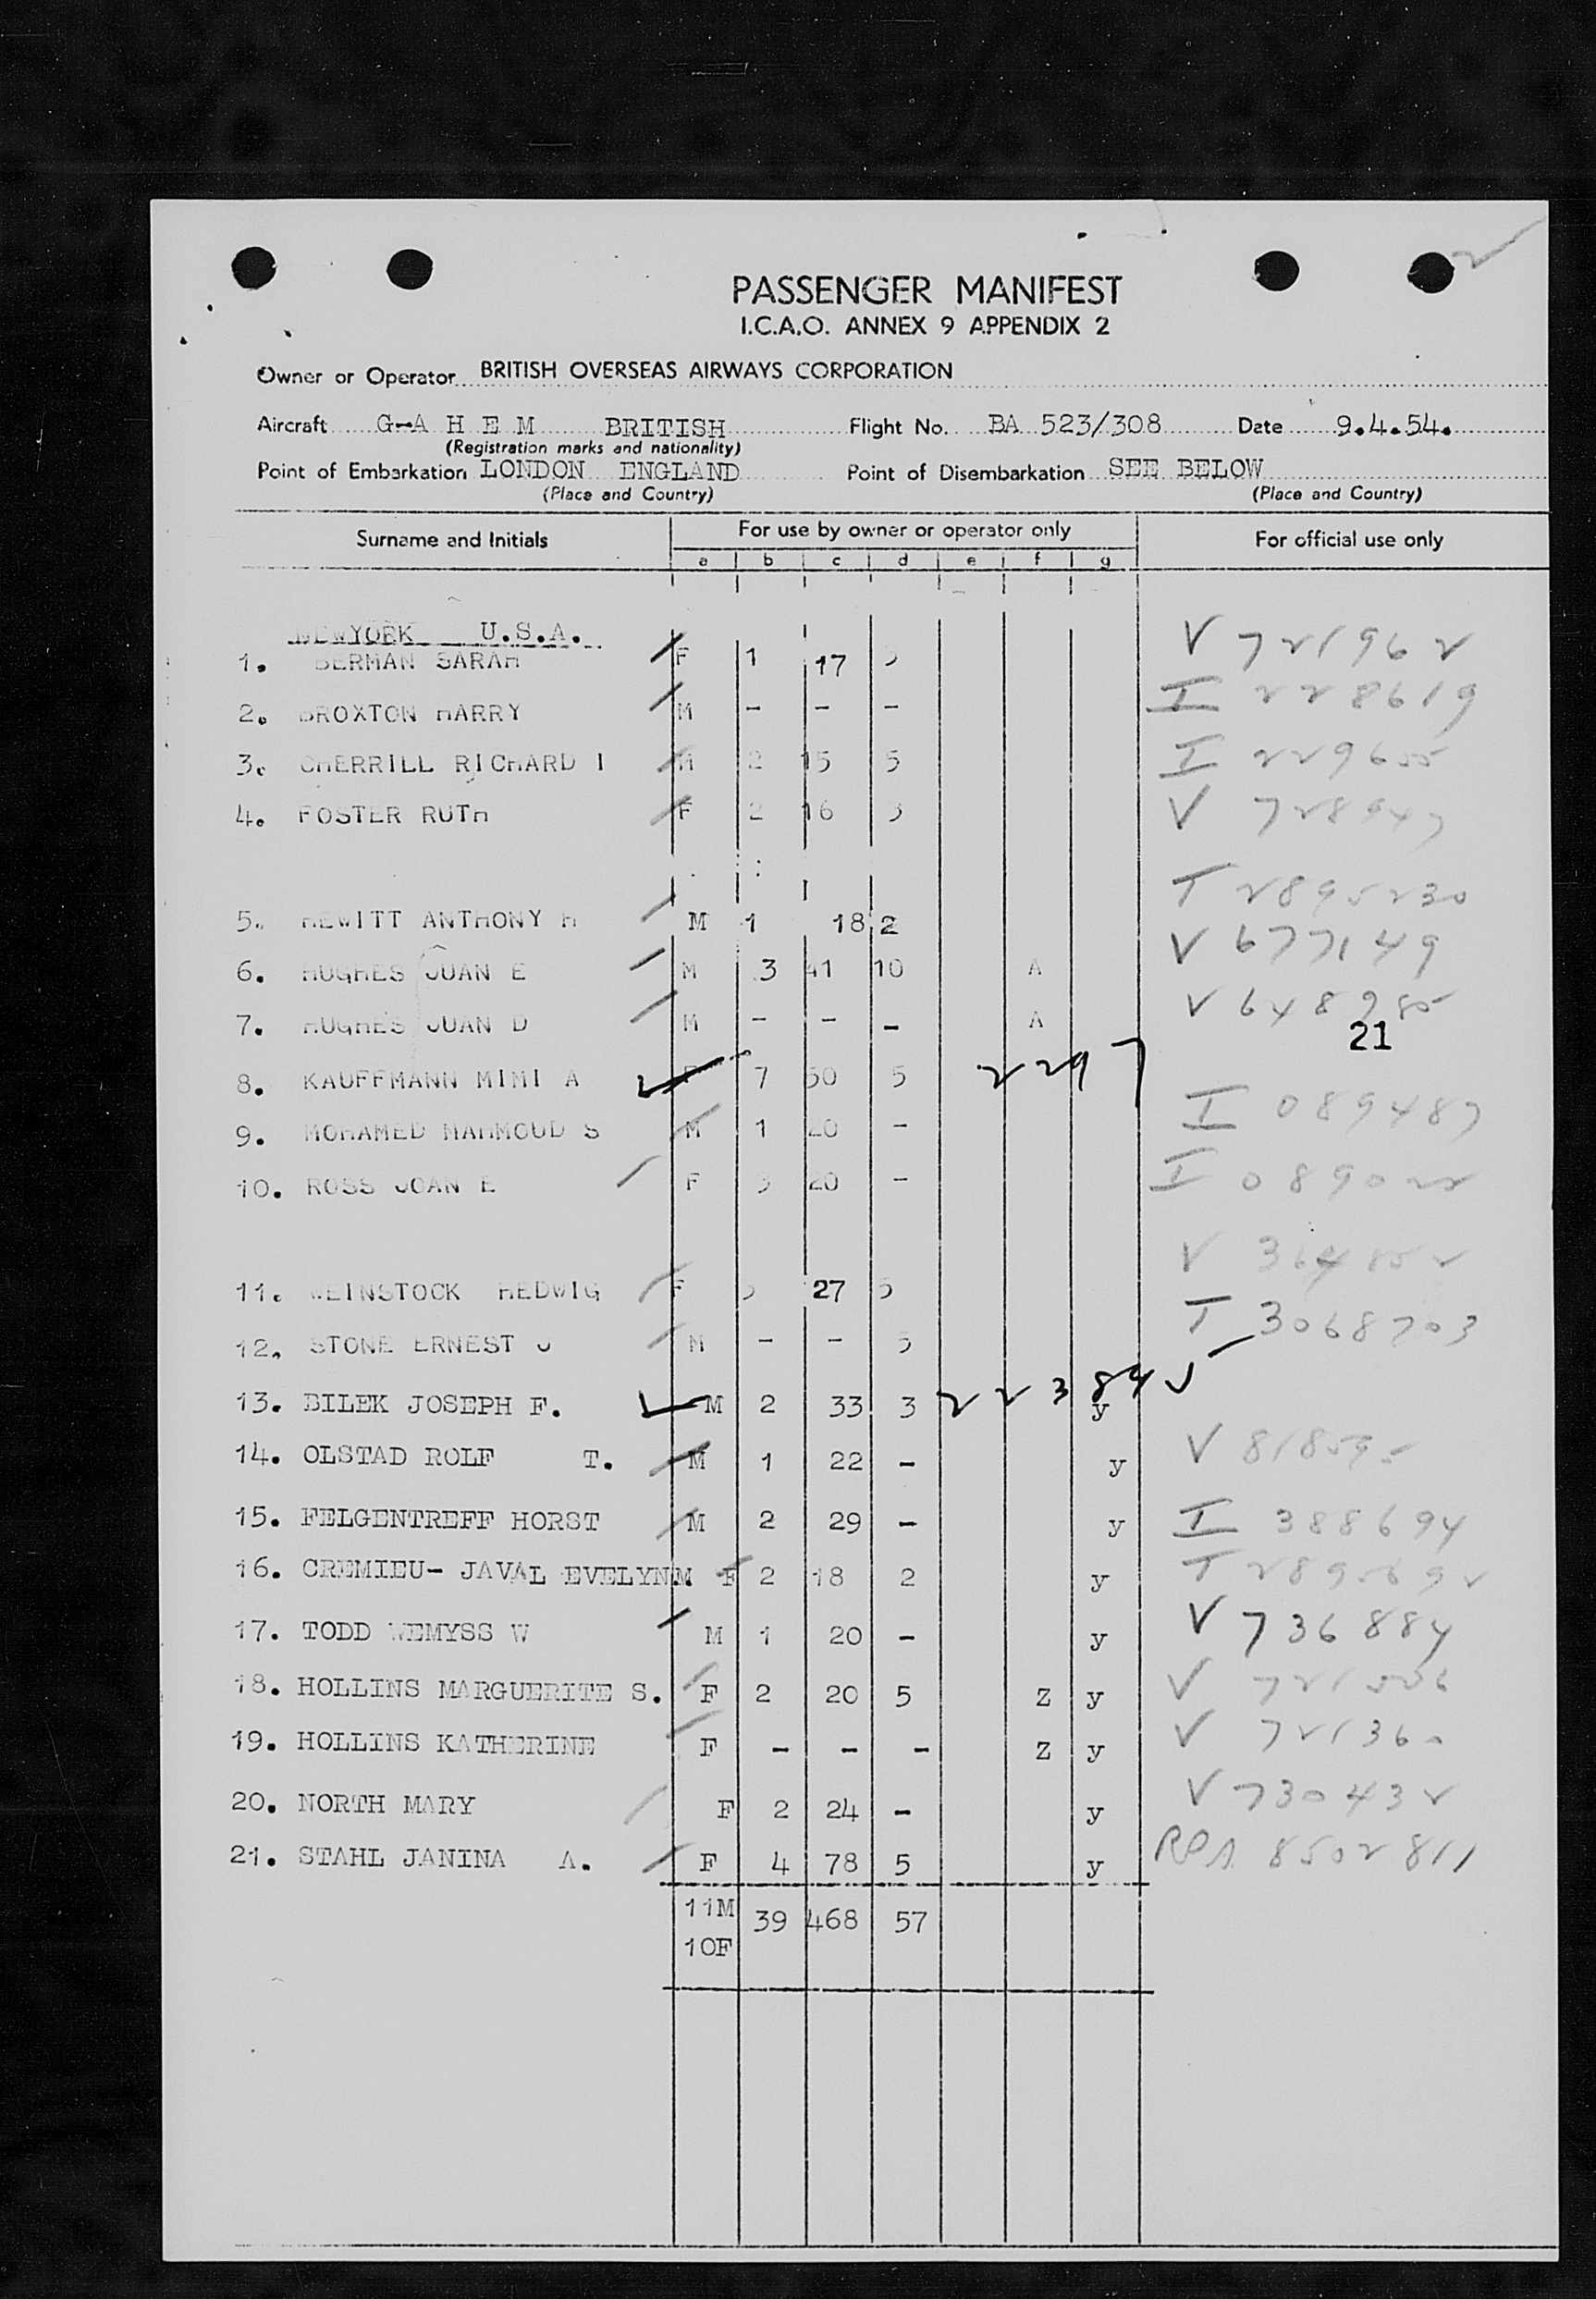 PASSENGER MANIFEST
I.C.A.O. ANNEX 9 APPENDIX 2
Owner or Operator BRITISH OVERSEAS AIRWAYS CORPORATION
Aircraft G-A H E M BRITISH Flight No. BA 523/308 Date 9.4.54.
(Registration marks and nationality)
Point of Embarkation LONDON ENGLAND Point of Disembarkation SEE BELOW
(Place and Country) (Place and Country)
Surname and Initials For use by owner or operator only For official use only
a b c d e f g
NEWYORK U.S.A.
1. BERMAN SARAH F 1 17 5 V 721962
2. BROXTON HARRY M - - - I 228619
3. CHERRILL RICHARD I M 2 15 5 I 229655
4. FOSTER RUTH F 2 16 3 V 728947
5. HEWITT ANTHONY H M 1 18 2 T 2895230
6. HUGHES JUAN E M 3 41 10 A V 677149
7. HUGHES JUAN D M - - - A V 648985
21
8. KAUFFMANN MIMI A F 7 50 5 2297
9. MOHAMED MAHMOUD S M 1 20 - I 089487
10. ROSS JOAN E F 3 20 - I 089022
11. WEINSTOCK HEDWIG F 27 5 V 364852
12. STONE ERNEST J M - - 5 T 3068703
13. BILEK JOSEPH F. M 2 33 3 y 223845
14. OLSTAD ROLF T. M 1 22 - y V 818595
15. FELGENTREFF HORST M 2 29 - y I 388694
16. CREMIEU- JAVAL EVELYN M. F 2 18 2 y T 2895692
17. TODD WEMYSS W M 1 20 - y V 736884
18. HOLLINS MARGUERITE S. F 2 20 5 Z y V 721556
19. HOLLINS KATHERINE F - - - Z y V 721360
20. NORTH MARY F 2 24 - y V 730432
21. STAHL JANINA A. F 4 78 5 y RPA 8502811
11M 39 468 57
10F